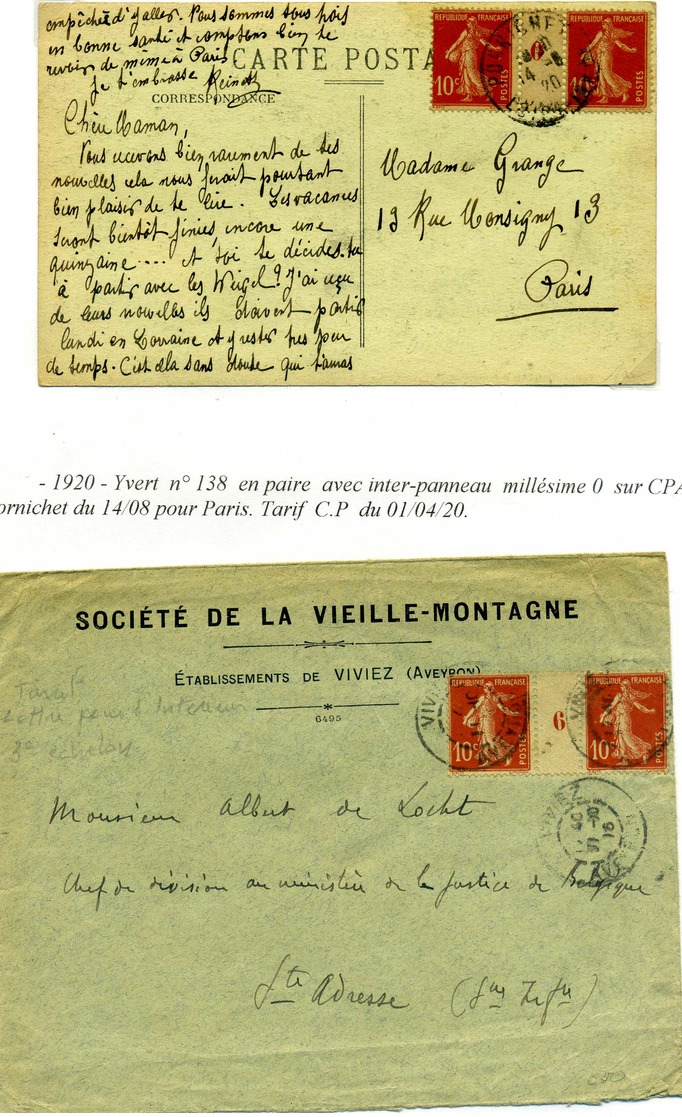 empêchés d'y aller. Nous sommes tous trois
en bonne santé et comptons bien te
revoir de même à Paris
Je t'embrasse
CARTE POSTA
CORRESPONDANCE
REPUBLIQUE FRANÇAISE
10c POSTES
0
REPUBLIQUE FRANÇAISE
POSTES
14 -8
20
Chère Maman,
Nous recevons bien rarement de tes
nouvelles cela nous ferait pourtant
bien plaisir de te lire. Les vacances
seront bientôt finies, encore une
quinzaine.... et toi te décides-tu
à partir avec les Weigel? J'ai reçu
de leurs nouvelles ils doivent partir
lundi en Lorraine et y rester très peu
de temps. C'est cela sans doute qui t'aura
Madame Grange
13 Rue Monsigny 13
Paris
- 1920 - Yvert n° 138 en paire avec inter-panneau millésime 0 sur CPA
ornichet du 14/08 pour Paris. Tarif C.P du 01/04/20.
SOCIÉTÉ DE LA VIEILLE-MONTAGNE
ÉTABLISSEMENTS DE VIVIEZ (AVEYRON)
6495
Tarif
Lettre pour l'Intérieur
3e échelon
REPUBLIQUE FRANÇAISE
10c POSTES
6
REPUBLIQUE FRANÇAISE
10c POSTES
VIVIEZ
AVEYRON
16
Monsieur Albert de Locht
Chef de division au ministère de la Justice de Belgique
Ste Adresse